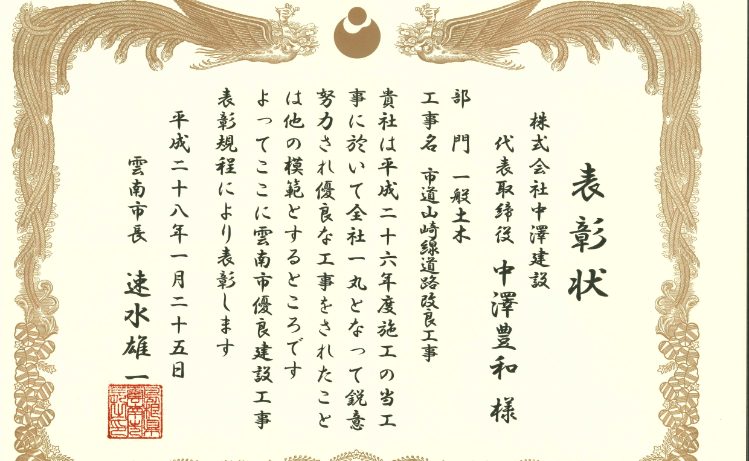 表彰状
株式会社中澤建設
代表取締役 中澤豊和 様
部 門 一般土木
工事名 市道山崎線道路改良工事
貴社は平成二十六年度施工の当工
事に於いて全社一丸となって鋭意
努力され優良な工事をされたこと
は他の模範とするところです
よってここに雲南市優良建設工事
表彰規程により表彰します
平成二十八年一月二十五日
雲南市長 速水雄一